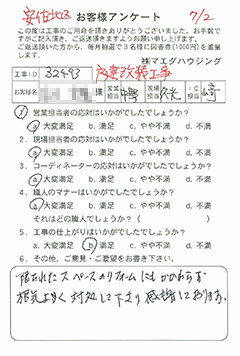 安佐北区 お客様アンケート 7/2
この度は工事のご用命を頂きありがとうございました。お手数で
すがご記入頂き、ご返送頂きますようお願い申し上げます。
ご返送頂いた方から、毎月抽選で3名様に図書券(1000円)を進呈
します。
㈱マエダハウジング
工事ID 32493 改装工事
お客様名 様 営業担当 現場担当 IC担当
1. 営業担当者の応対はいかがでしたでしょうか?
a 大変満足 b. 満足 c. やや不満 d. 不満
2. 現場担当者の応対はいかがでしたでしょうか?
a 大変満足 b. 満足 c. やや不満 d. 不満
3. コーディネーターの応対はいかがでしたでしょうか?
a 大変満足 b. 満足 c. やや不満 d. 不満
4. 職人のマナーはいかがでしたでしょうか?
a 大変満足 b. 満足 c. やや不満 d. 不満
それはどの職人でしょうか( )
5. 工事の仕上がりはいかがでしたでしょうか?
a. 大変満足 b 満足 c. やや不満 d. 不満
6. その他、ご意見・ご要望をお書き下さい。
限られたスペースのリフォームにもかかわらず
根気よく対処して下さり感謝しております。